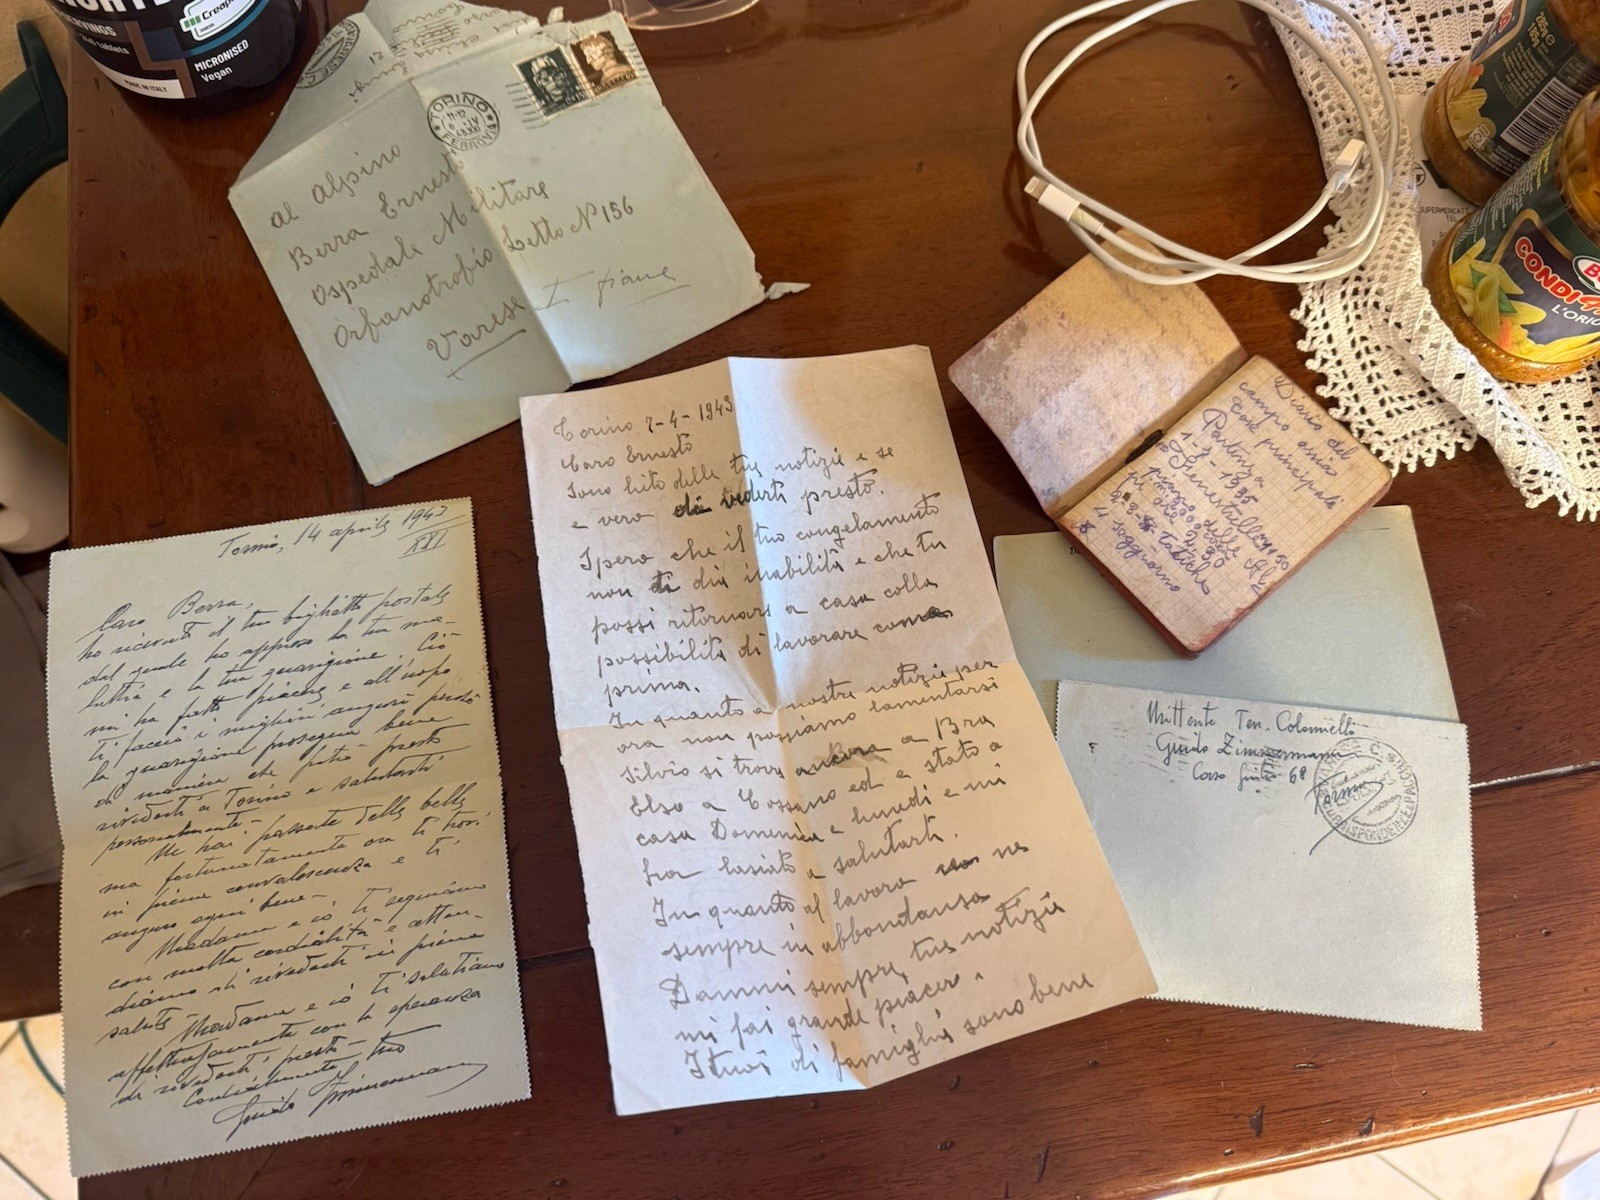 Creap
SERVINGS
tablets
MICRONISED
Vegan
MADE IN ITALY
TORINO
FERROVIA
al Alpino
Berra Ernesto
Ospedale Militare
Orfanotrofio Letto N° 156
Varese I piano
Torino 7-4-1943
Caro Ernesto
Sono lieto delle tue notizie e se
e vero di vederti presto.
Spero che il tuo congelamento
non ti dia inabilità e che tu
possi ritornare a casa colla
possibilità di lavorare come
prima.
In quanto a nostre notizie per
ora non possiamo lamentarsi
Silvio si trova ancora a Bra
Elso a Cossano ed e stato a
casa Domenica e lunedi e mi
ha lasiato a salutarti.
In quanto al lavoro ne
sempre in abbondansa
Dammi sempre tue notizie
mi fai grande piacere.
I tuoi di famiglia sono bene
Torino, 14 aprile 1943
XXI
Caro Berra,
ho ricevuto il tuo biglietto postale
dal quale ho appreso la tua ma-
lattia e la tua guarigione. Ciò
mi ha fatto piacere e all'uopo
ti faccio i migliori auguri perché
la guarigione prosegua bene
di maniera che potrò presto
rivederti a Torino e salutarti
personalmente.
Ne hai passate delle belle
ma fortunatamente ora ti trovi
in piena convalescenza e ti
auguro ogni bene.
Madame e io ti seguiamo
con molta cordialità e atten-
diamo di rivederti in piena
salute.
Madame e io ti salutiamo
affettuosamente con la speranza
di rivederti presto - tuo
Guido Zimmermann
Diario del
campo ossia
cose principali
Partenza
1-1-1935
a Fenestrelle
soggiorno
Mittente Ten. Colonnello
Guido Zimmermann
68
Torino
SUPERMERCAT
TEL
CONDI
L'ORI